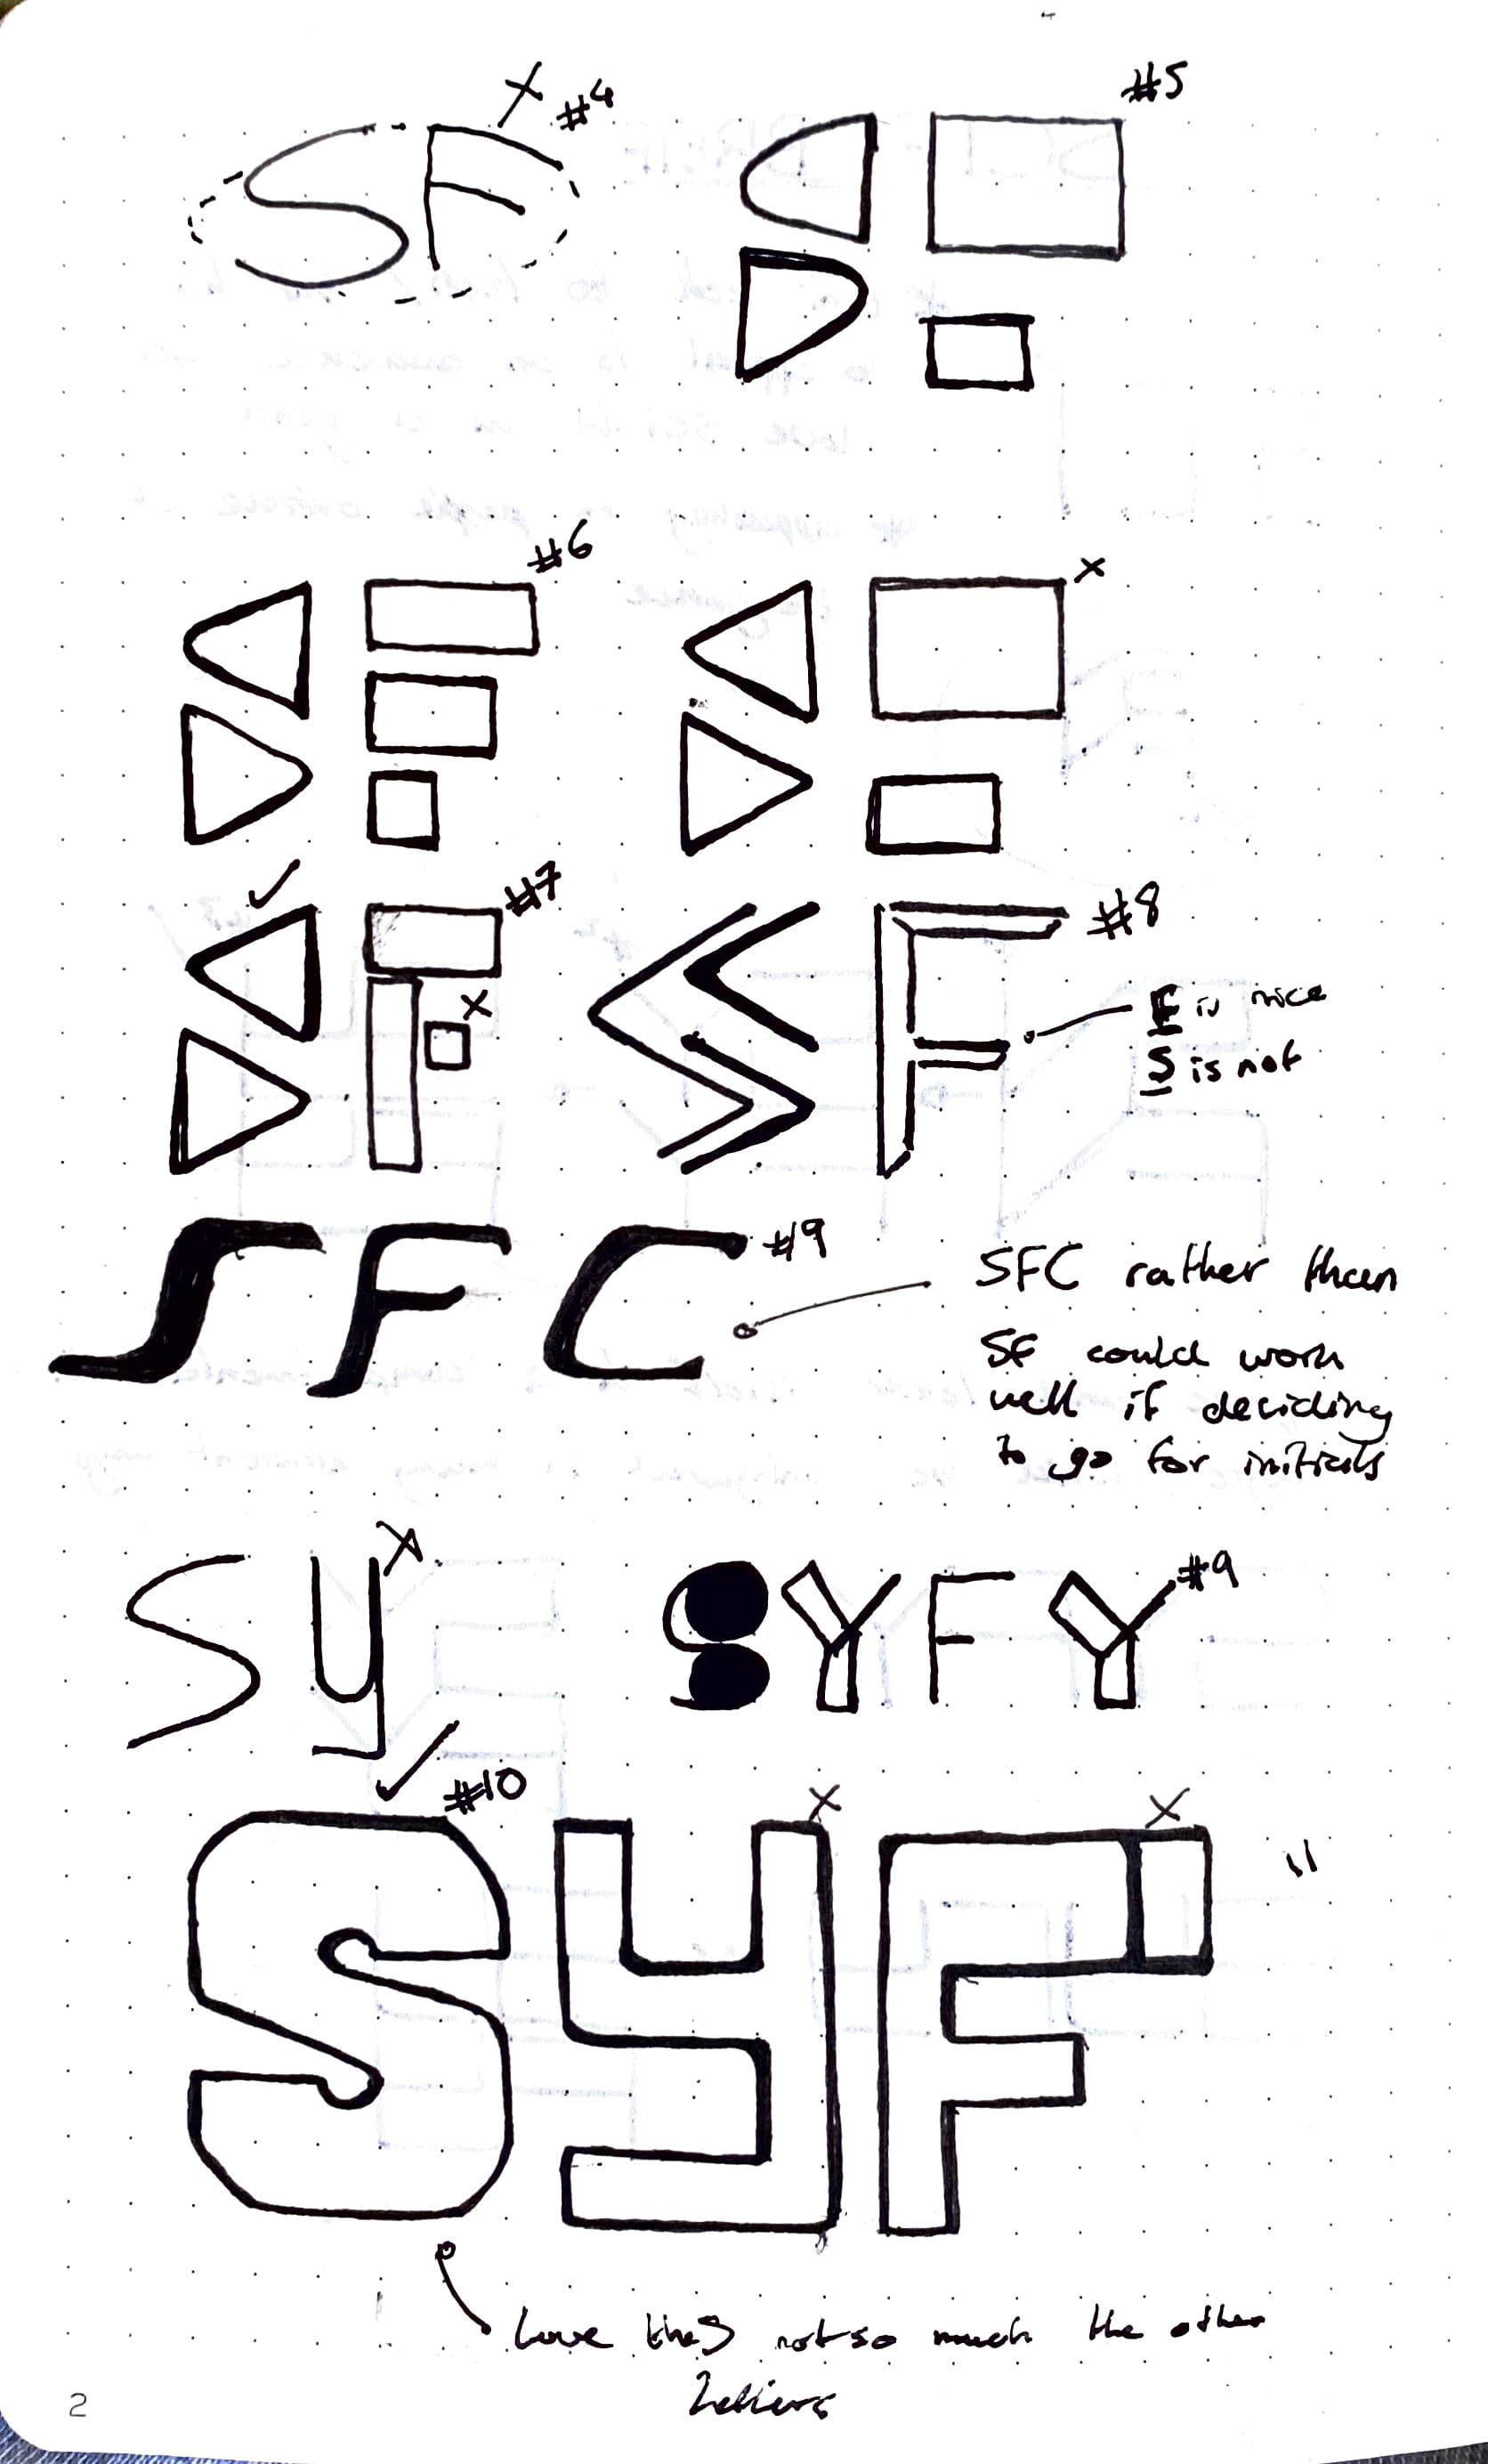 SF
#4
#5
#6
#7
SF
#8
F is nice
S is not
SFC
#9
SFC rather than
SF could work
well if deciding
to go for initials
Sy
SYFY
#9
#10
SyF
Love the S not so much the other
letters
2